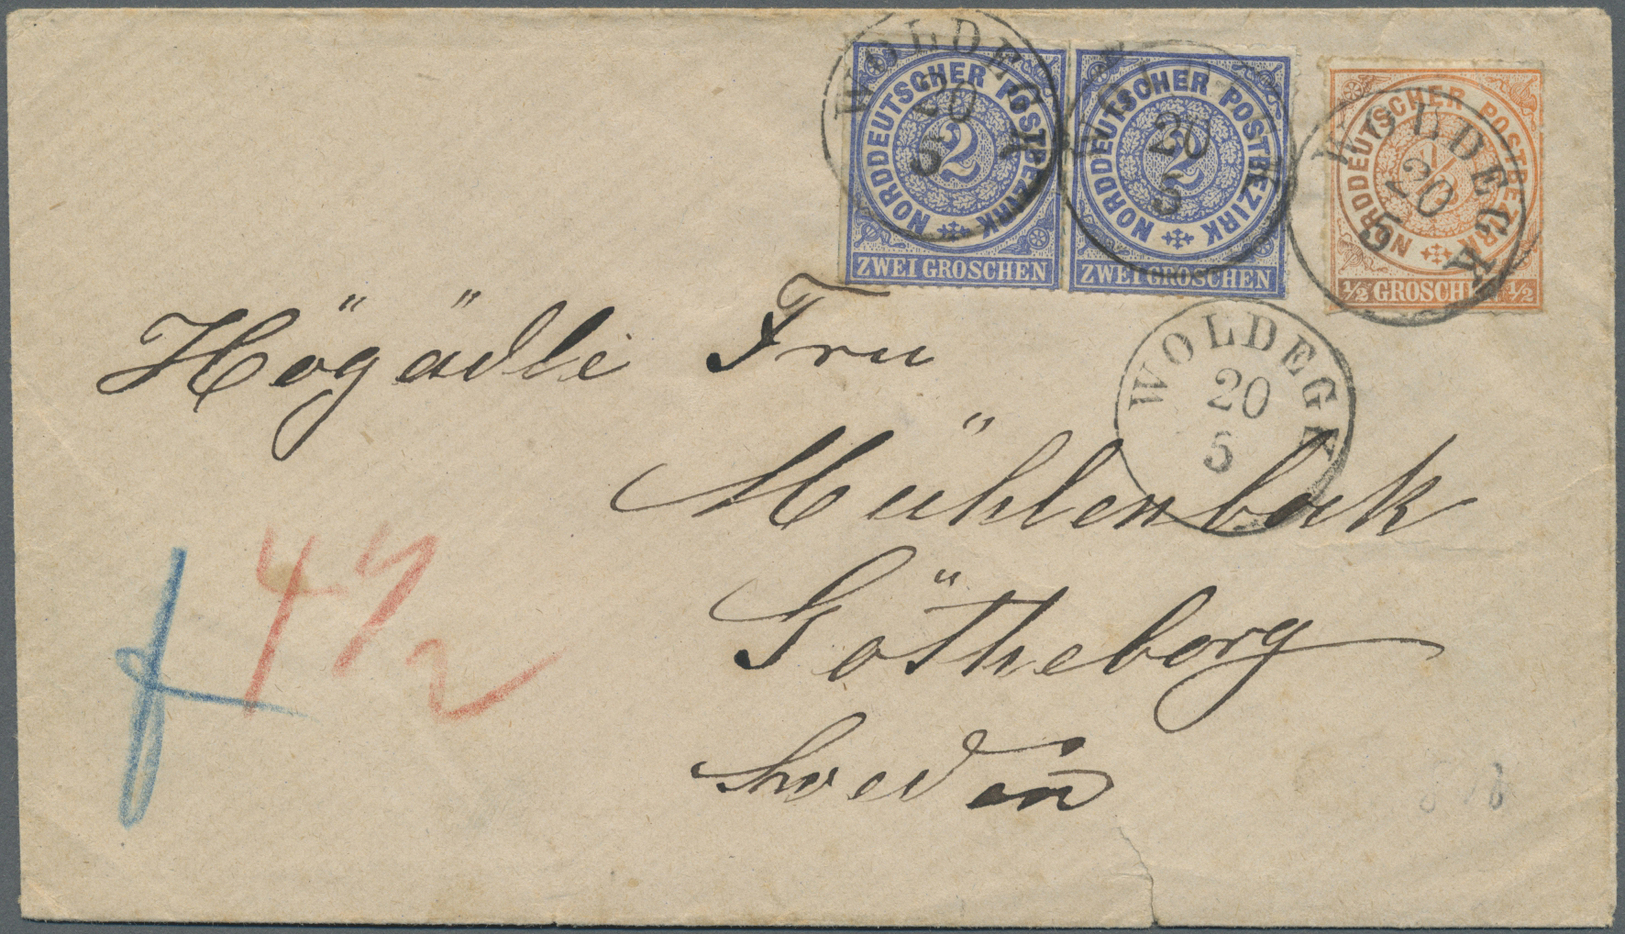 NORDDEUTSCHER POSTBEZIRK
2
ZWEI GROSCHEN
WOLDEGK
20
5
NORDDEUTSCHER POSTBEZIRK
2
ZWEI GROSCHEN
WOLDEGK
20
5
NORDDEUTSCHER POSTBEZIRK
1/2
1/2 GROSCHEN 1/2
WOLDEGK
20
5
WOLDEGK
20
5
Högädle Fru
Mühlenbak
Götheborg
Sweden
f 4 1/2